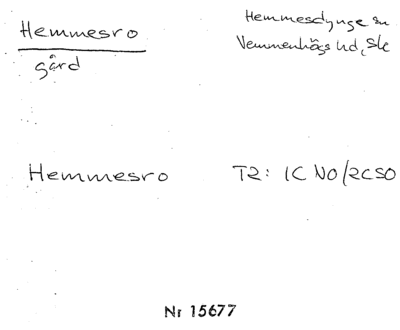 Hemmesro
gård
Hemmesdynge sn
Vemmenhögs hd, Sk
Hemmesro
T2: 1C NO/2CSO
Nr 15677